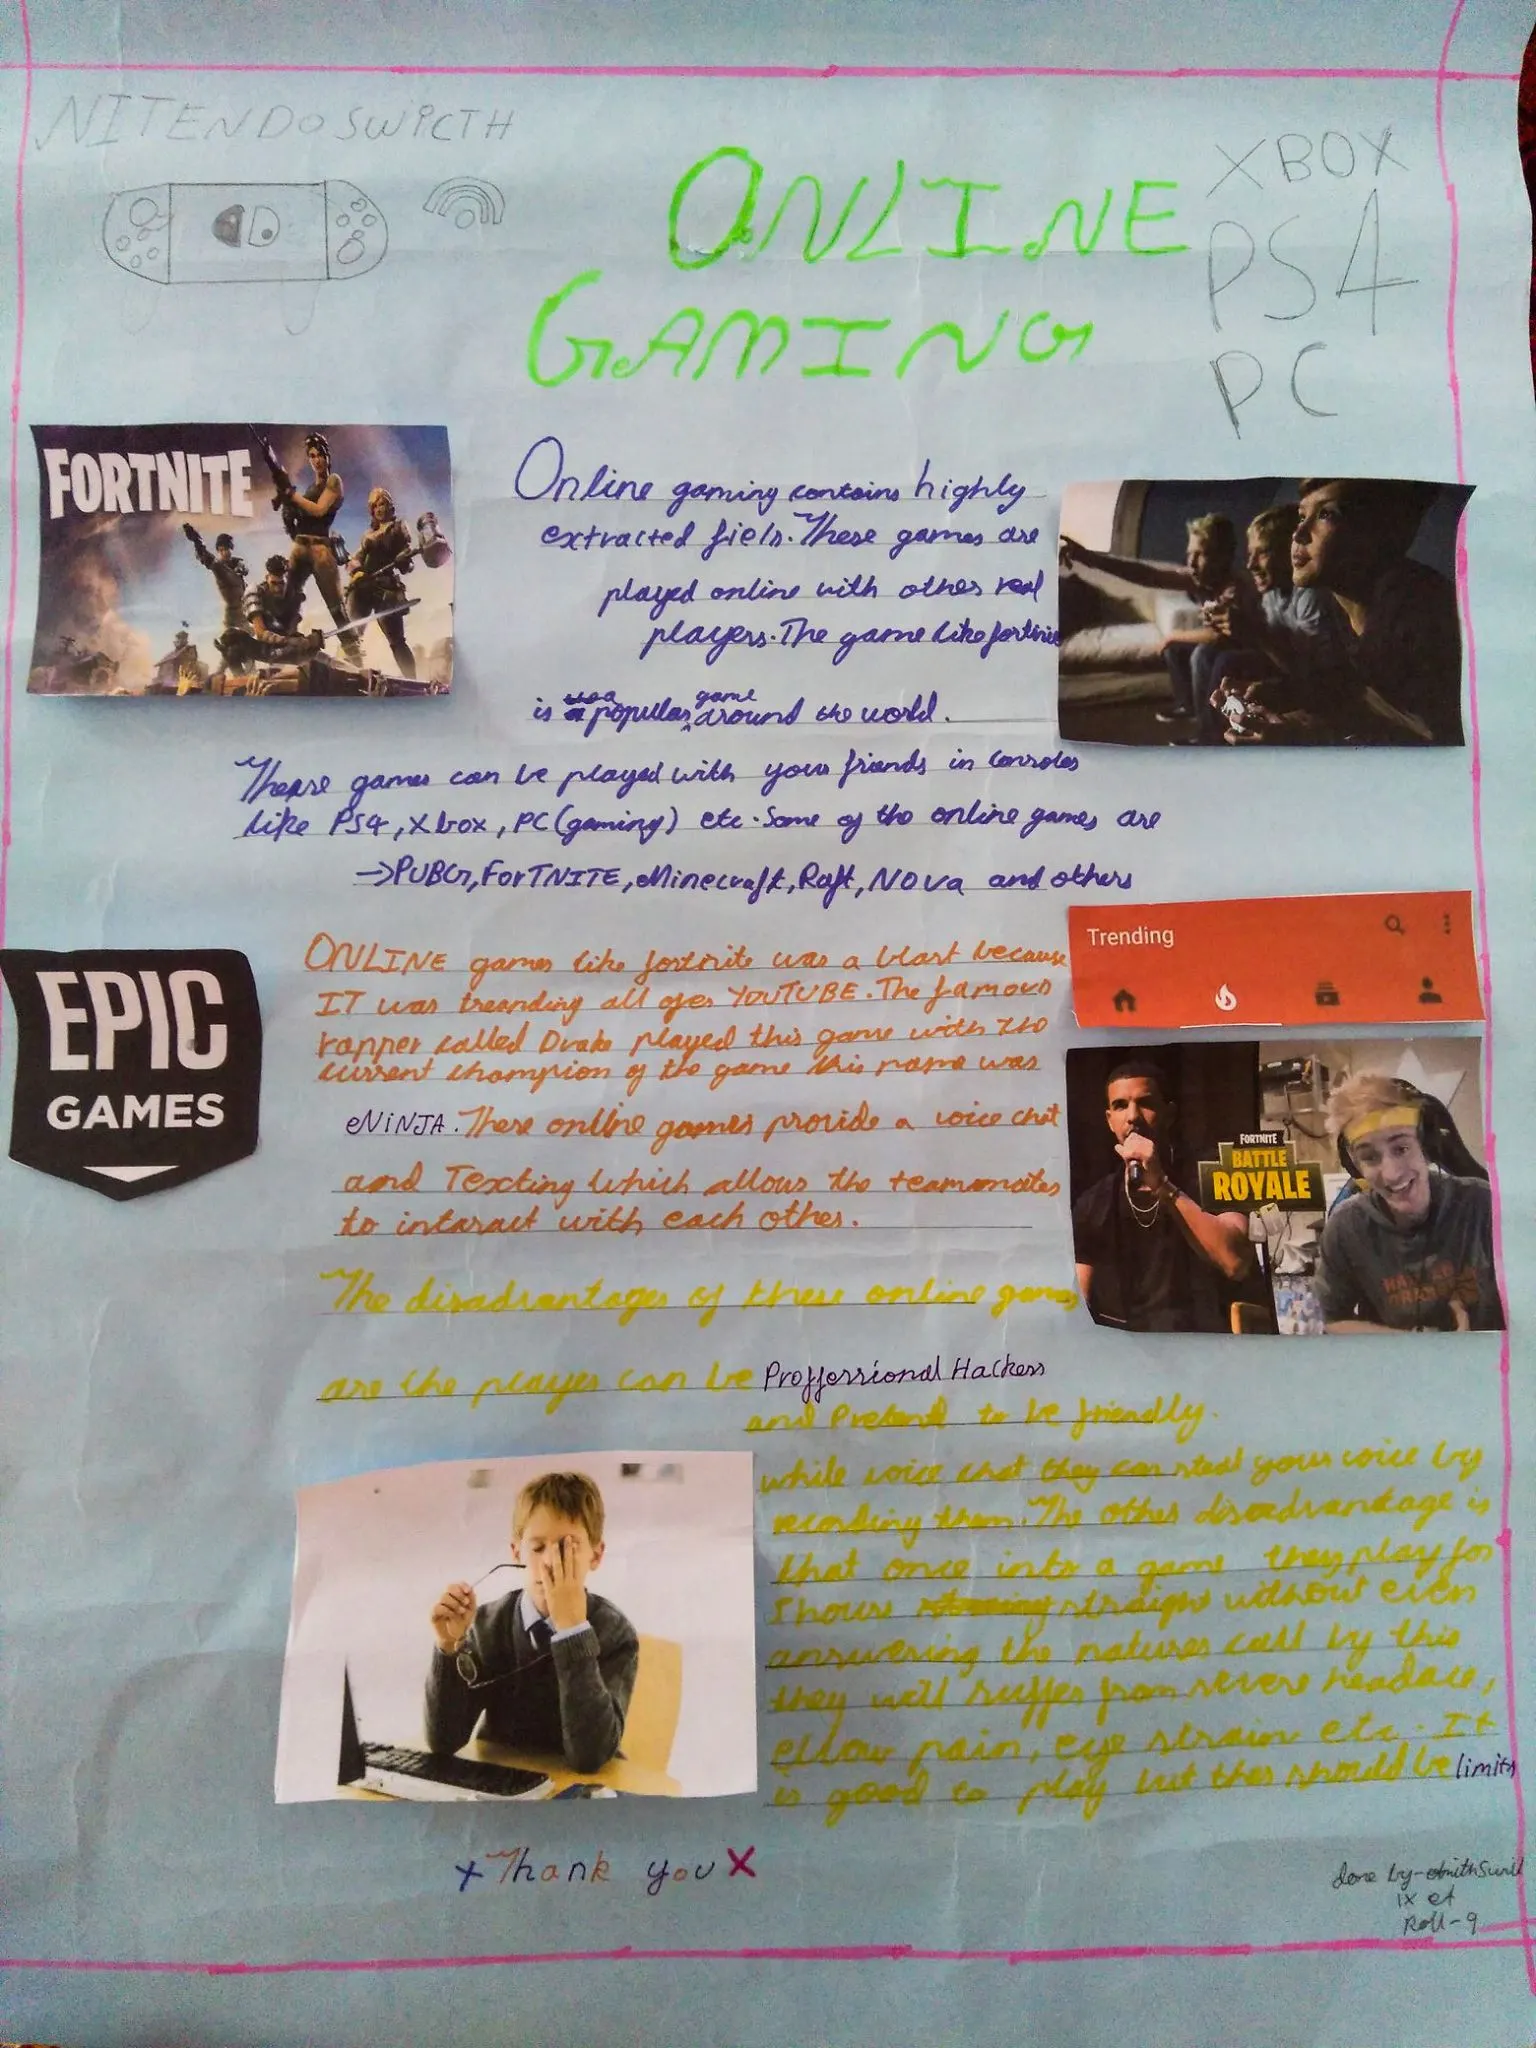 NITENDO SWICTH
XBOX
PS4
PC
ONLINE
GAMING
FORTNITE
Online gaming contains highly
extracted fiels. These games are
played online with other real
players. The game like fortnite
is popular game around the world.
These games can be played with your friends in consoles
like PS4, Xbox, PC (gaming) etc. Some of the online games are
→PUBG, ForTNITE, Minecraft, Raft, NOVa and others
EPIC
GAMES
ONLINE games like fortnite was a blast because
IT was treanding all ofer YOUTUBE. The famous
rapper called Drake played this game with the
current champion of the game this name was
NiNJA. These online games provide a voice chat
and Texting which allows the teammates
to intaract with each other.
Trending
FORTNITE
BATTLE
ROYALE
The disadvantages of these online games
are the player can be Proffessional Hackers
and Pretend to be friendly.
while voice chat they can steal your voice by
recording them. The other disadvantage is
that once into a game they play for
1 hour straight without even
answering the natures call by this
they will suffer from severe headace,
ellow pain, eye strain etc. It
is good to play but ther should be limits
×Thank you×
done by-
IX
Roll-9